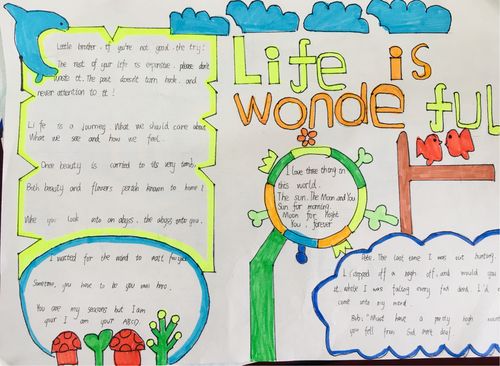 Life is
wonde ful
Little brother, if you're not good, the try!
The rest of your life is expensive, please don't
waste it. The past doesn't turn back, and
never attention to it!
Life is a journey. What we should care about
What we see and how we feel.
Once beauty is carried to its very tomb,
Both beauty and flowers perish known to home!
Whe you look into an abyss, the abyss onto you.
I waited for the wind to
Sometime, you have to be you own hero.
You are my seasons but I am
your I am your ABCD.
I love three thing in
this world.
The sun. The Moon and You
Sun for morning.
Moon for Night
You, forever
The last time I was out hunting.
I stepped off a high cliff, and would you
it, while I was falling every fool deed I'd
came into my mind.
Bob: "Must have a pretty high
you fell from